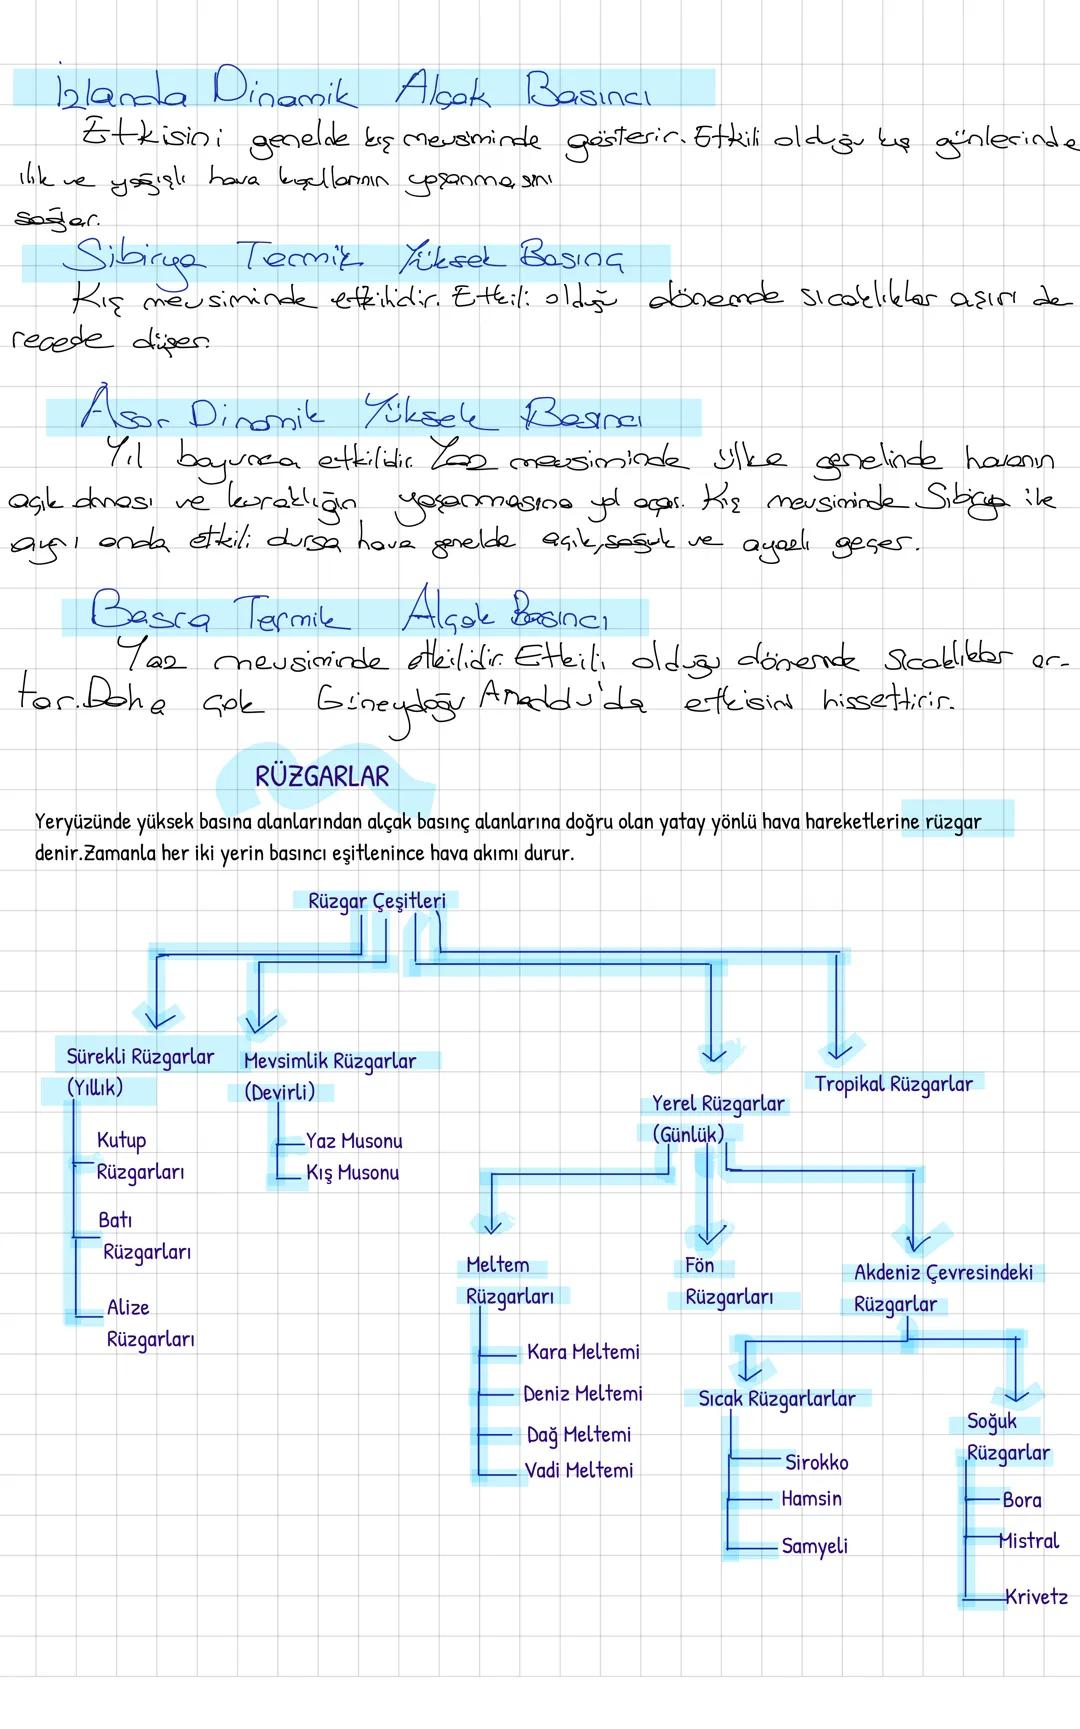 İzlanda Dinamik Alçak Basıncı
Etkisini genelde kış mevsiminde gösterir. Etkili olduğu kış günlerinde
ılık ve yağışlı hava koşullarının yaşanmasını
sağlar.
Sibirya Termik Yüksek Basınç
Kış mevsiminde etkilidir. Etkili olduğu dönemde sıcaklıklar aşırı de
recede düşer.
Asor Dinamik Yüksek Basıncı
Yıl boyunca etkilidir. Yaz mevsiminde ülke genelinde havanın
açık olması ve kuraklığın yaşanmasına yol açar. Kış mevsiminde Sibirya ile
aynı anda etkili olursa hava genelde açık, soğuk ve ayazlı geçer.
Basra Termik Alçak Basıncı
Yaz mevsiminde etkilidir. Etkili olduğu dönemde sıcaklıklar ar-
tar. Daha çok Güneydoğu Anadolu'da etkisini hissettirir.
RÜZGARLAR
Yeryüzünde yüksek basına alanlarından alçak basınç alanlarına doğru olan yatay yönlü hava hareketlerine rüzgar
denir.Zamanla her iki yerin basıncı eşitlenince hava akımı durur.
Rüzgar Çeşitleri
Sürekli Rüzgarlar
(Yıllık)
Kutup
Rüzgarları
Batı
Rüzgarları
Alize
Rüzgarları
Mevsimlik Rüzgarlar
(Devirli)
Yaz Musonu
Kış Musonu
Yerel Rüzgarlar
(Günlük)
Tropikal Rüzgarlar
Meltem
Rüzgarları
Kara Meltemi
Deniz Meltemi
Dağ Meltemi
Vadi Meltemi
Fön
Rüzgarları
Akdeniz Çevresindeki
Rüzgarlar
Sıcak Rüzgarlarlar
Sirokko
Hamsin
Samyeli
Soğuk
Rüzgarlar
Bora
Mistral
Krivetz